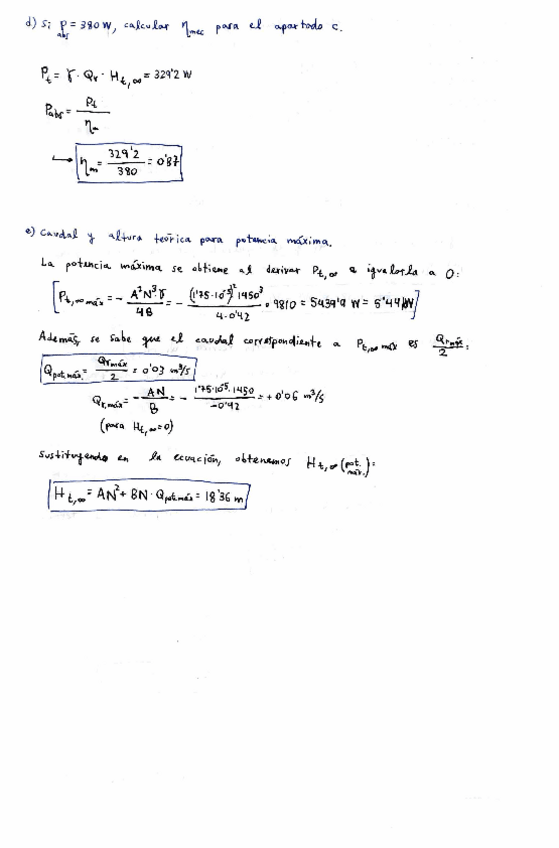 d) Si P_abs = 380 W, calcular η_mec para el apartado c.
P_t = γ · Q_r · H_t,∞ = 329'2 W
P_abs = P_t / η_m
↳ η_m = 329'2 / 380 = 0'87
e) Caudal y altura teórica para potencia máxima.
La potencia máxima se obtiene al derivar P_t,∞ e igualarla a 0:
[P_t,∞ máx = - A²N³γ / 4B = - (1'75·10⁻⁵)² 1450³ / 4·0'42 · 9810 = 5439'9 W = 5'44 kW]
Además, se sabe que el caudal correspondiente a P_t,∞ máx es Q_r máx / 2:
Q_pot.máx. = Q_r máx / 2 = 0'03 m³/s
Q_r,máx = - AN / B = - 1'75·10⁻⁵·1450 / -0'42 = + 0'06 m³/s
(para H_t,∞ = 0)
Sustituyendo en la ecuación, obtenemos H_t,∞ (pot. máx.) =
H_t,∞ = AN² + BN · Q_pot.máx = 18'36 m